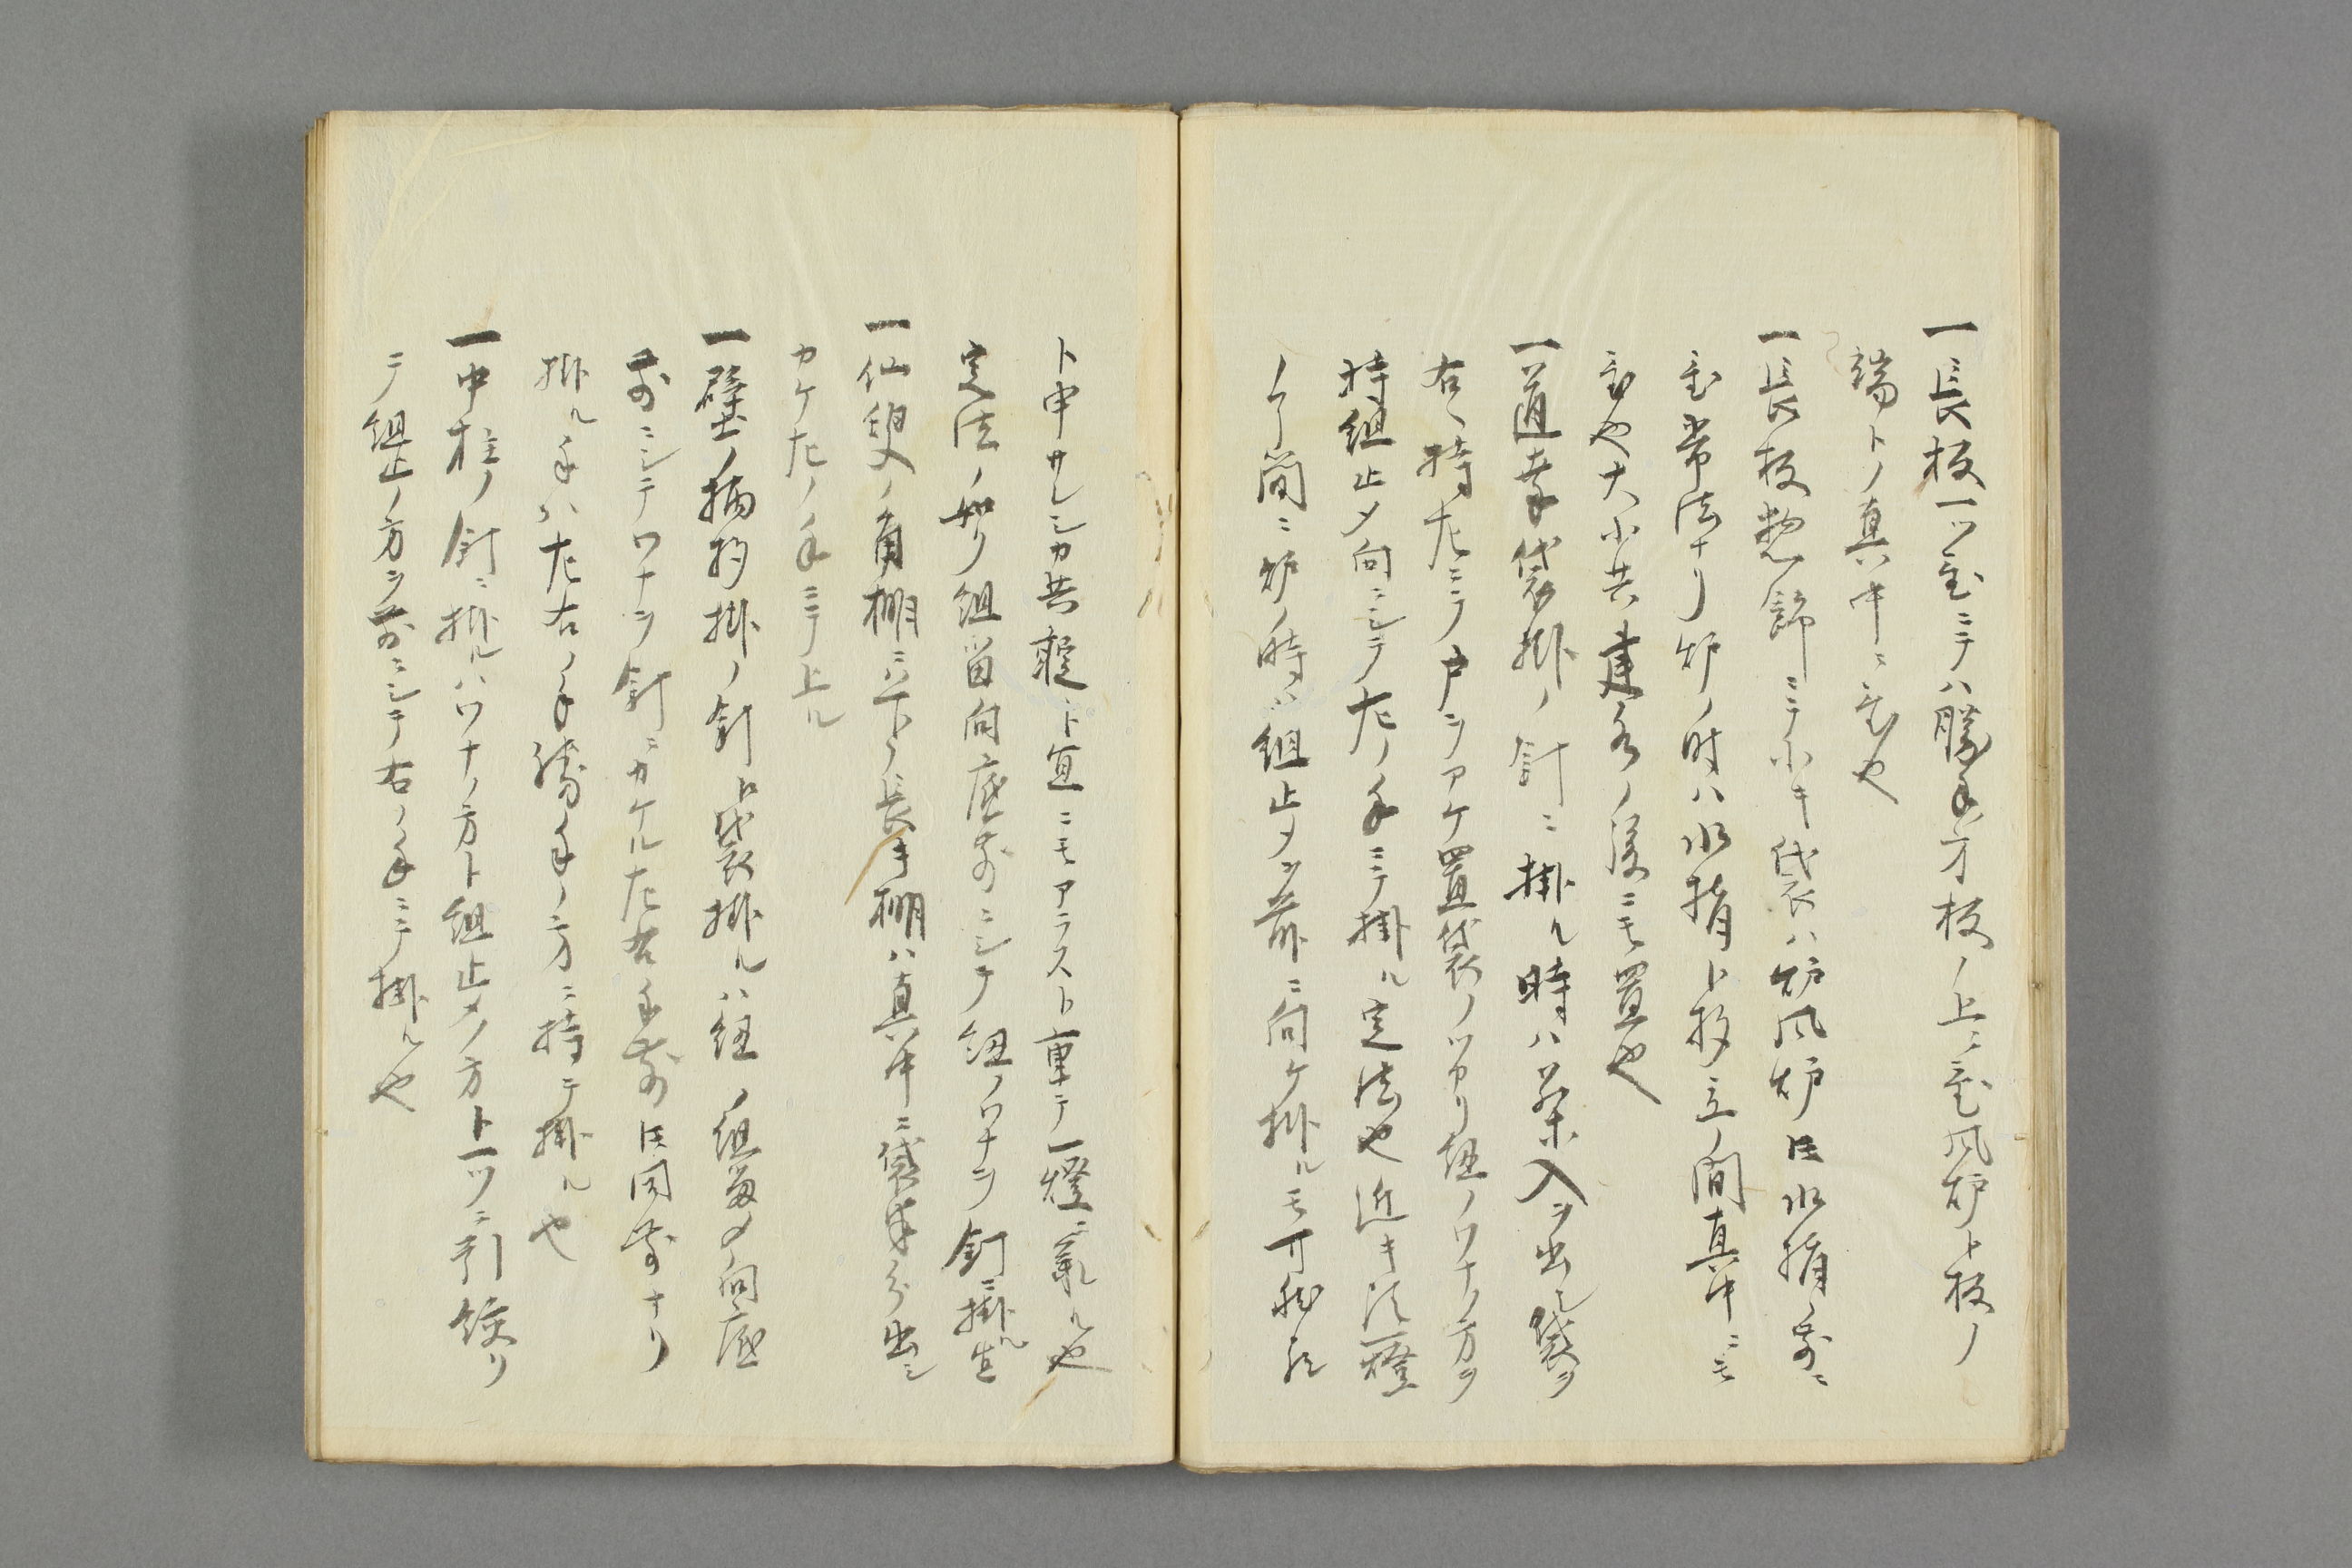 一長板一ツ置ニテハ勝手ノ方板ノ上ニ置風炉ト板ノ
端トノ真中ニ置也
一長板惣飾ニテ小キ袋ハ炉風炉氏水指ノ前ニ
置常法ナリ炉ノ時ハ水指ト杓立ノ間真中ニモ
置也大小共建水ノ後ニモ置也
一道幸袋掛ノ釘ニ掛ル時ハ茶入ヲ出シ袋ヲ
右ニ持左ニテ戸ヲアケ置袋ノツカリ紐ノワナノ方ヲ
持組止メ向ニシテ左ノ手ニテ掛ル定法也近キ頃一燈
ノ了簡ニ炉ノ時ハ組止メヲ前ニ向ケ掛ルモ可然
ト申サレシカ共 ト宜ニモアラスト重テ一燈ニ ル也
定法ノ如ク組留向底前ニシテ紐ノワナヲ釘ニ掛ル
一仙叟ノ角棚ニハ下ノ長キ棚ハ真中ニ袋 ヨリ出シ
カケ左ノ手ニテ上ル
一壁ノ柄杓掛ノ釘ヘ袋掛ルハ紐ノ組留メ向底
前ニシテワナヲ釘ニカケル左右手前氏同前ナリ
掛ル手ハ左右ノ手勝手ノ方ニ持テ掛ル也
一中柱ノ釘ニ掛ルハワナノ方ト組止メノ方ト一ツニ引 リ
テ組止ノ方ヲ前ニシテ右ノ手ニテ掛ル也